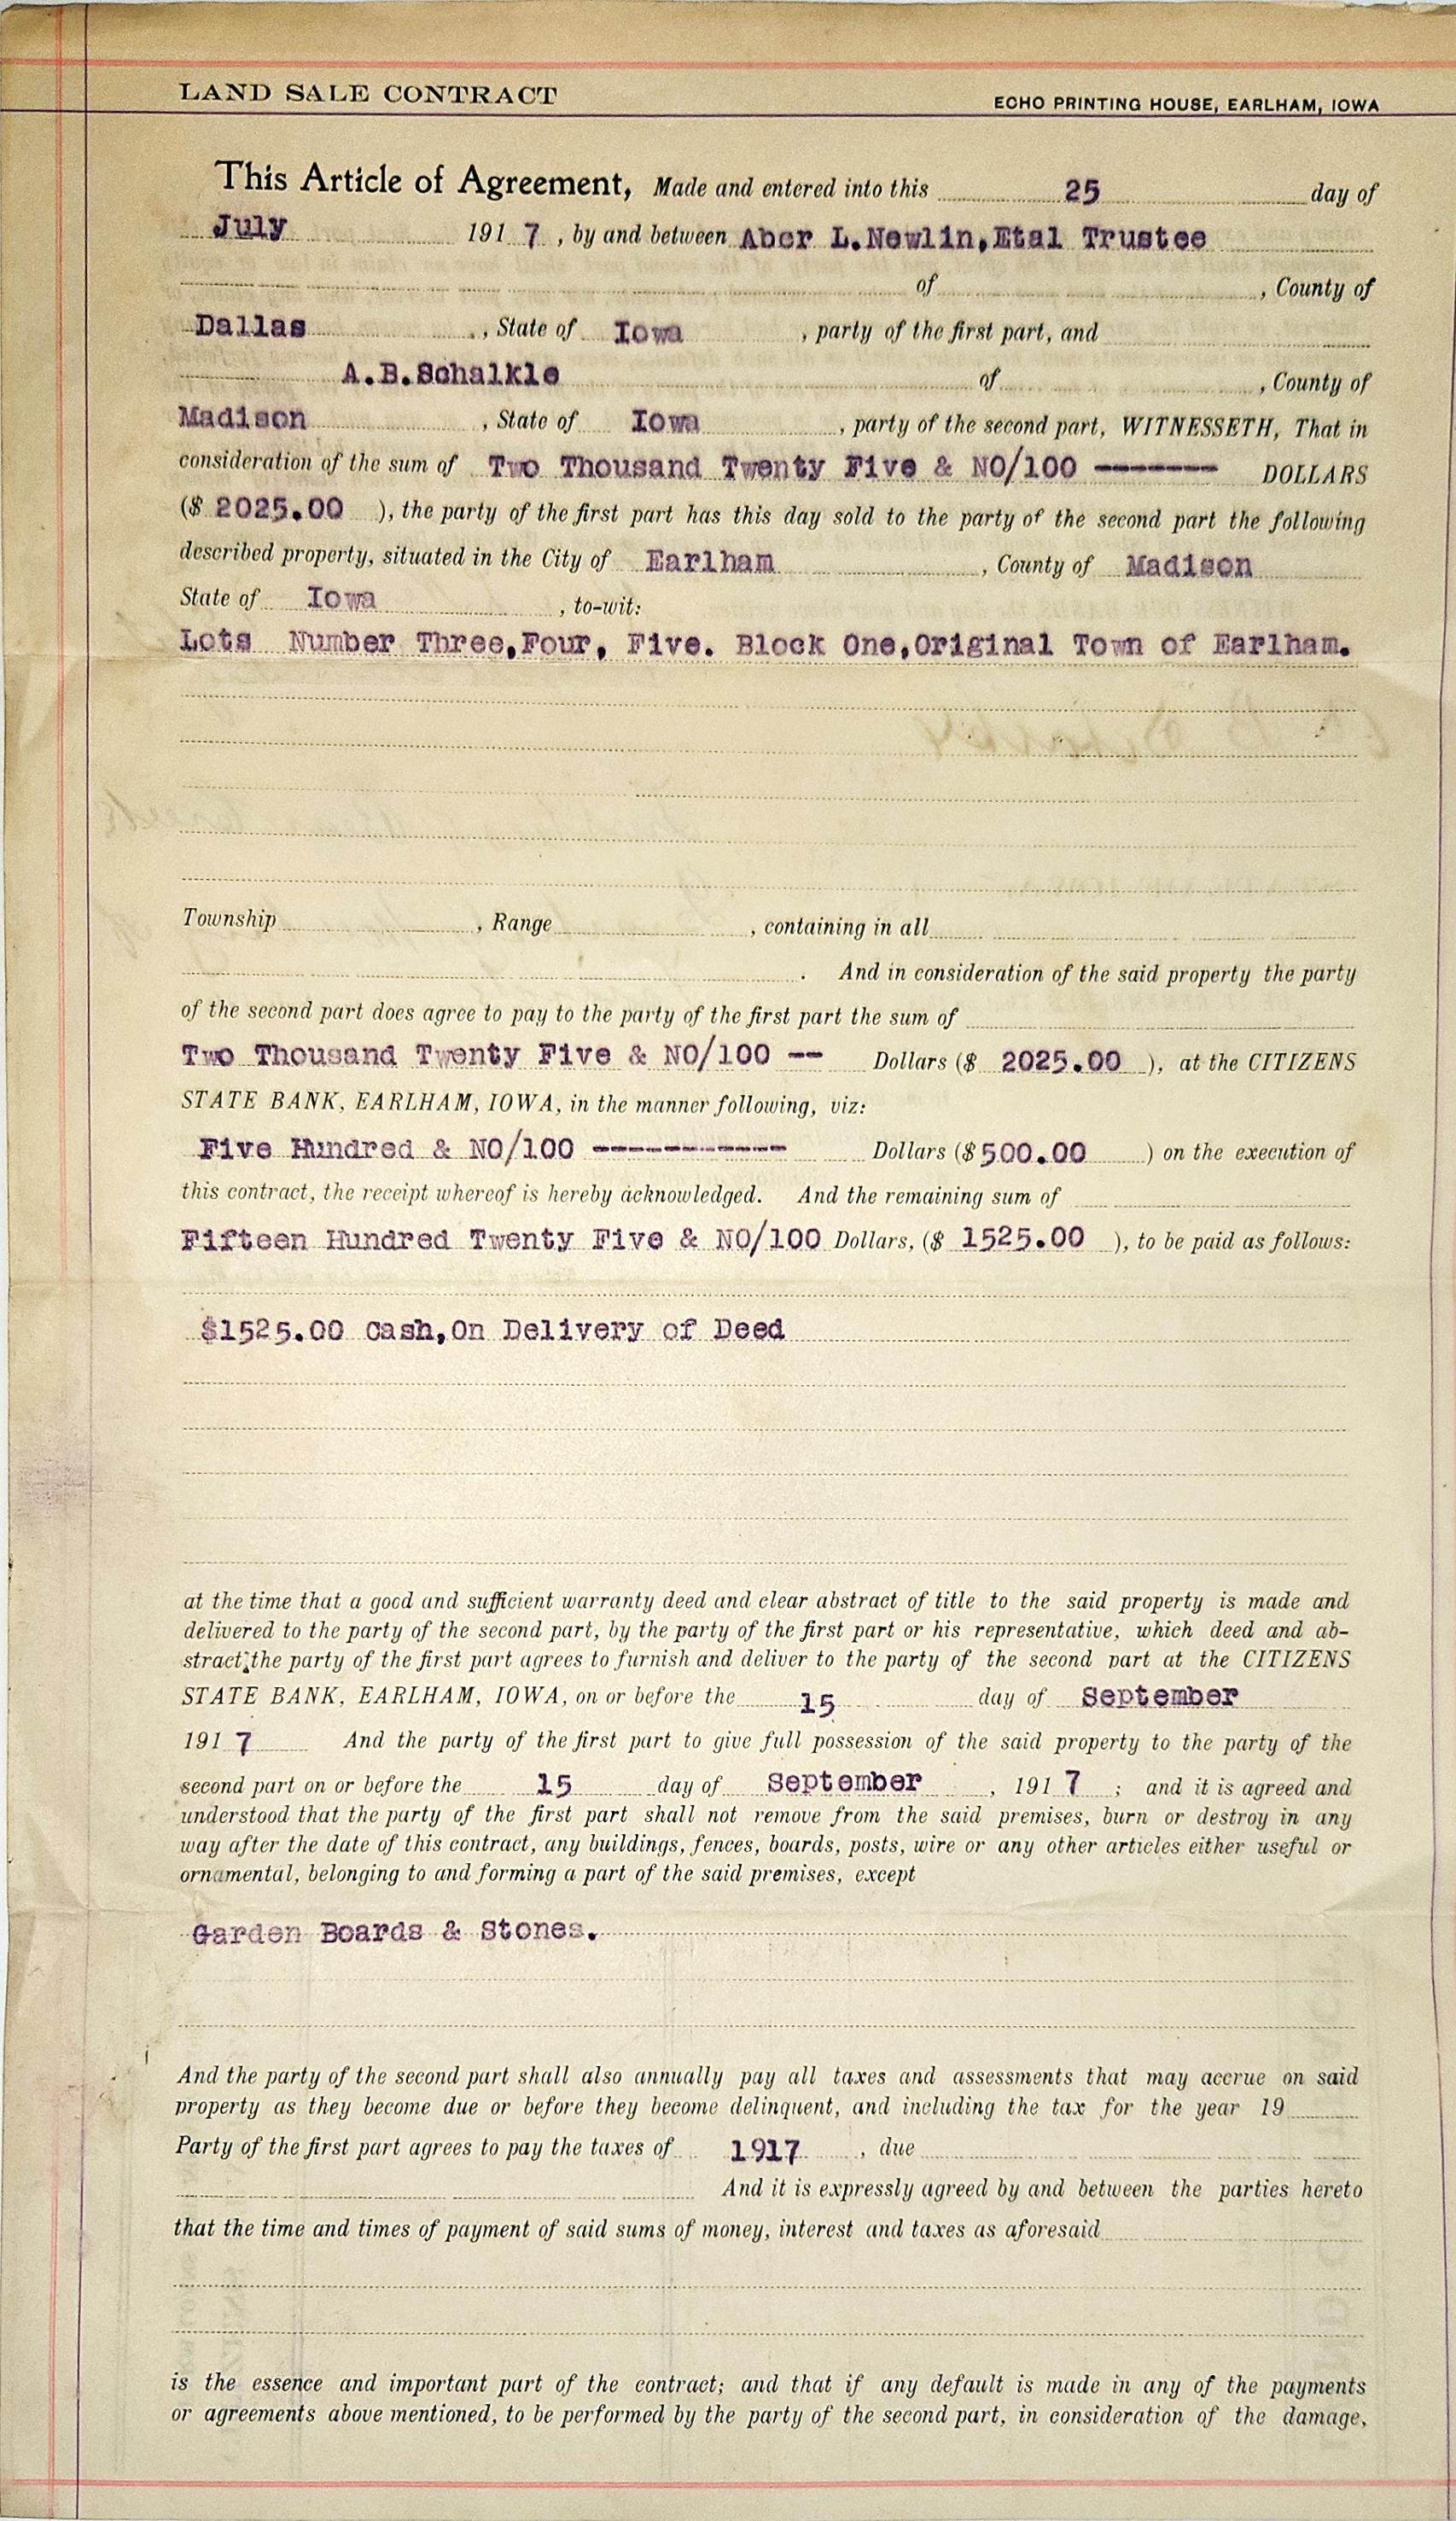 LAND SALE CONTRACT
ECHO PRINTING HOUSE, EARLHAM, IOWA
This Article of Agreement, Made and entered into this 25 day of
July 191 7 , by and between Aber L.Newlin,Etal Trustee
of , County of
Dallas , State of Iowa , party of the first part, and
A.B.Schalkle of , County of
Madison , State of Iowa , party of the second part, WITNESSETH, That in
consideration of the sum of Two Thousand Twenty Five & NO/100 ------- DOLLARS
($ 2025.00 ), the party of the first part has this day sold to the party of the second part the following
described property, situated in the City of Earlham , County of Madison
State of Iowa , to-wit:
Lots Number Three,Four, Five. Block One,Original Town of Earlham.
Township , Range , containing in all
. And in consideration of the said property the party
of the second part does agree to pay to the party of the first part the sum of
Two Thousand Twenty Five & NO/100 -- Dollars ($ 2025.00 ), at the CITIZENS
STATE BANK, EARLHAM, IOWA, in the manner following, viz:
Five Hundred & NO/100 ----------- Dollars ($500.00 ) on the execution of
this contract, the receipt whereof is hereby acknowledged. And the remaining sum of
Fifteen Hundred Twenty Five & NO/100 Dollars, ($ 1525.00 ), to be paid as follows:
$1525.00 Cash,On Delivery of Deed
at the time that a good and sufficient warranty deed and clear abstract of title to the said property is made and
delivered to the party of the second part, by the party of the first part or his representative, which deed and ab-
stract, the party of the first part agrees to furnish and deliver to the party of the second part at the CITIZENS
STATE BANK, EARLHAM, IOWA, on or before the 15 day of September
191 7 And the party of the first part to give full possession of the said property to the party of the
second part on or before the 15 day of September , 191 7 ; and it is agreed and
understood that the party of the first part shall not remove from the said premises, burn or destroy in any
way after the date of this contract, any buildings, fences, boards, posts, wire or any other articles either useful or
ornamental, belonging to and forming a part of the said premises, except
Garden Boards & Stones.
And the party of the second part shall also annually pay all taxes and assessments that may accrue on said
property as they become due or before they become delinquent, and including the tax for the year 19
Party of the first part agrees to pay the taxes of 1917 , due
And it is expressly agreed by and between the parties hereto
that the time and times of payment of said sums of money, interest and taxes as aforesaid
is the essence and important part of the contract; and that if any default is made in any of the payments
or agreements above mentioned, to be performed by the party of the second part, in consideration of the damage,